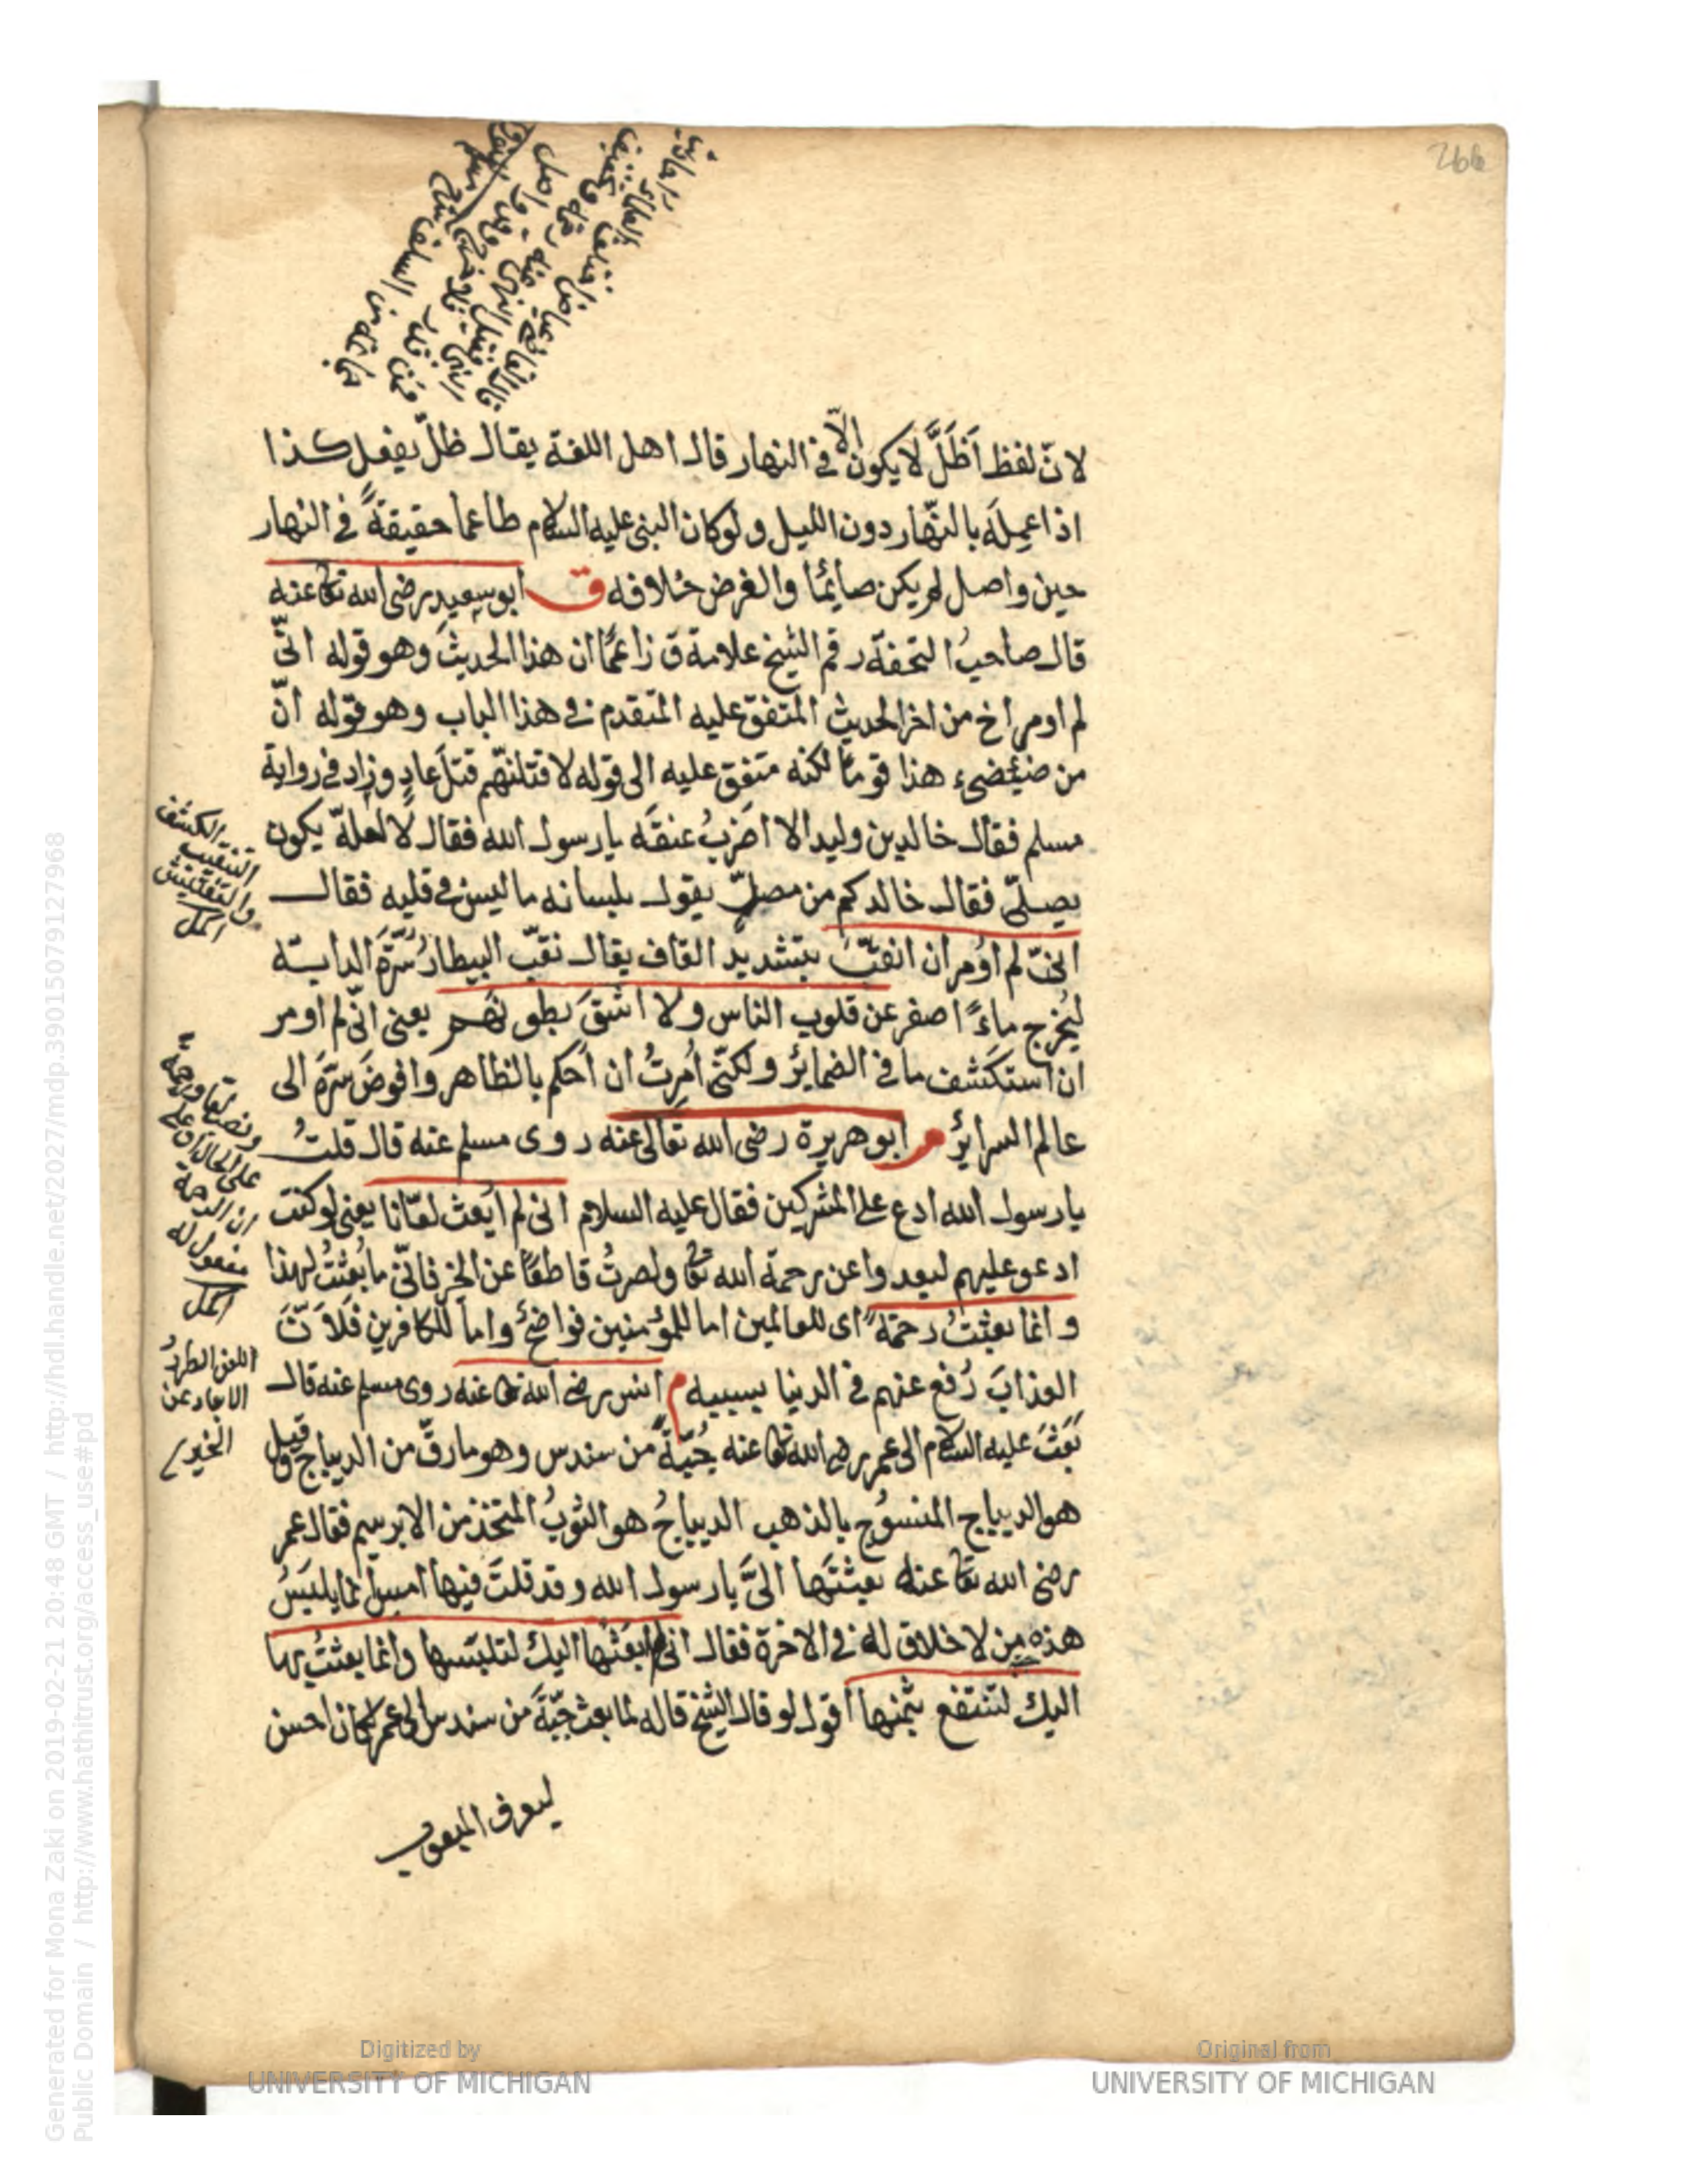 266
لانّ لفظ أَظَلَّ لا يكون الّا في النهار قال اهل اللغة يقال ظلّ يفعل كذا
اذا عمِلَه بالنّهار دون الليل ولو كان النبى عليه السلام طاعما حقيقةً في النهار
حين واصل لم يكن صايمًا والغرض خلافه ق ابو سعيد رضى الله تعا عنه
قال صاحبُ التحفة رقم الشيخ علامة ق زاعمًا ان هذا الحديث وهو قوله انّى
لم اومر اخ من اخر الحديث المتفق عليه المتقدم في هذا الباب وهو قوله انّ
من ضئضىء هذا قومًا لكنه متفق عليه الى قوله لاقتلنّهم قتلَ عادٍ وزاد في رواية
مسلم فقال خالد بن وليد الا اضربُ عنقَه يا رسول الله فقال لا لعلّه يكون
يصلّى فقال خالد كم من مصلٍّ يقول بلسانه ما ليس في قلبه فقال
انّى لم اُومر ان انقّبَ بتشديد القاف يقال نقّب البيطار سُرّةَ الدابّة
ليُخرج ماءً اصفر عن قلوب الناس ولا اشقَّ بطونهم يعنى انّى لم اومر
ان استكشف ما في الضماير ولكنّى اُمرتُ ان اَحكم بالظاهر وافوضَ سرَّه الى
عالم السراير م ابو هريرة رضى الله تعالى عنه روى مسلم عنه قال قلتُ
يا رسول الله ادع على المشركين فقال عليه السلام انى لم اُبعث لعّانا يعنى لو كنت
ادعو عليهم لبعدوا عن رحمة الله تعا ولصرتُ قاطعًا عن الخير فانّى ما بُعثتُ لهذا
وانما بعثتُ رحمةً اى للعالمين اما للمؤمنين فواضحٌ واما للكافرين فلانّ
العذابَ رُفع عنهم في الدنيا بسببه م انس رضى الله تعا عنه روى مسلم عنه قال
بَعَثَ عليه السلام الى عمر رضى الله تعا عنه جُبّةً من سندس وهو ما رقّ من الديباج وقيل
هو الديباج المنسوُج بالذهب الديباجُ هو الثوبُ المتّخذ من الابرسيم فقال عمر
رضى الله تعا عنه بعثتَها الىَّ يا رسول الله وقد قلتَ فيها امس انما يلبَسُ
هذه من لا خلاق له في الاخرة فقال انى لم ابعَثْها اليك لتلبَسها وانما بعثتُ بها
اليك لتنتفع بثمنها اقول لو قال الشيخ قاله لما بعث جبّةً من سندس الى عمر لكان احسن
ليعرف المبعوث
التنقيب الكشف
والتفتيش
اكمل
ونصبها ورحمة
على الحال او على
ان الرحمة
مفعول له
اكمل
اللعن الطردُ
الابعاد عن
الخير